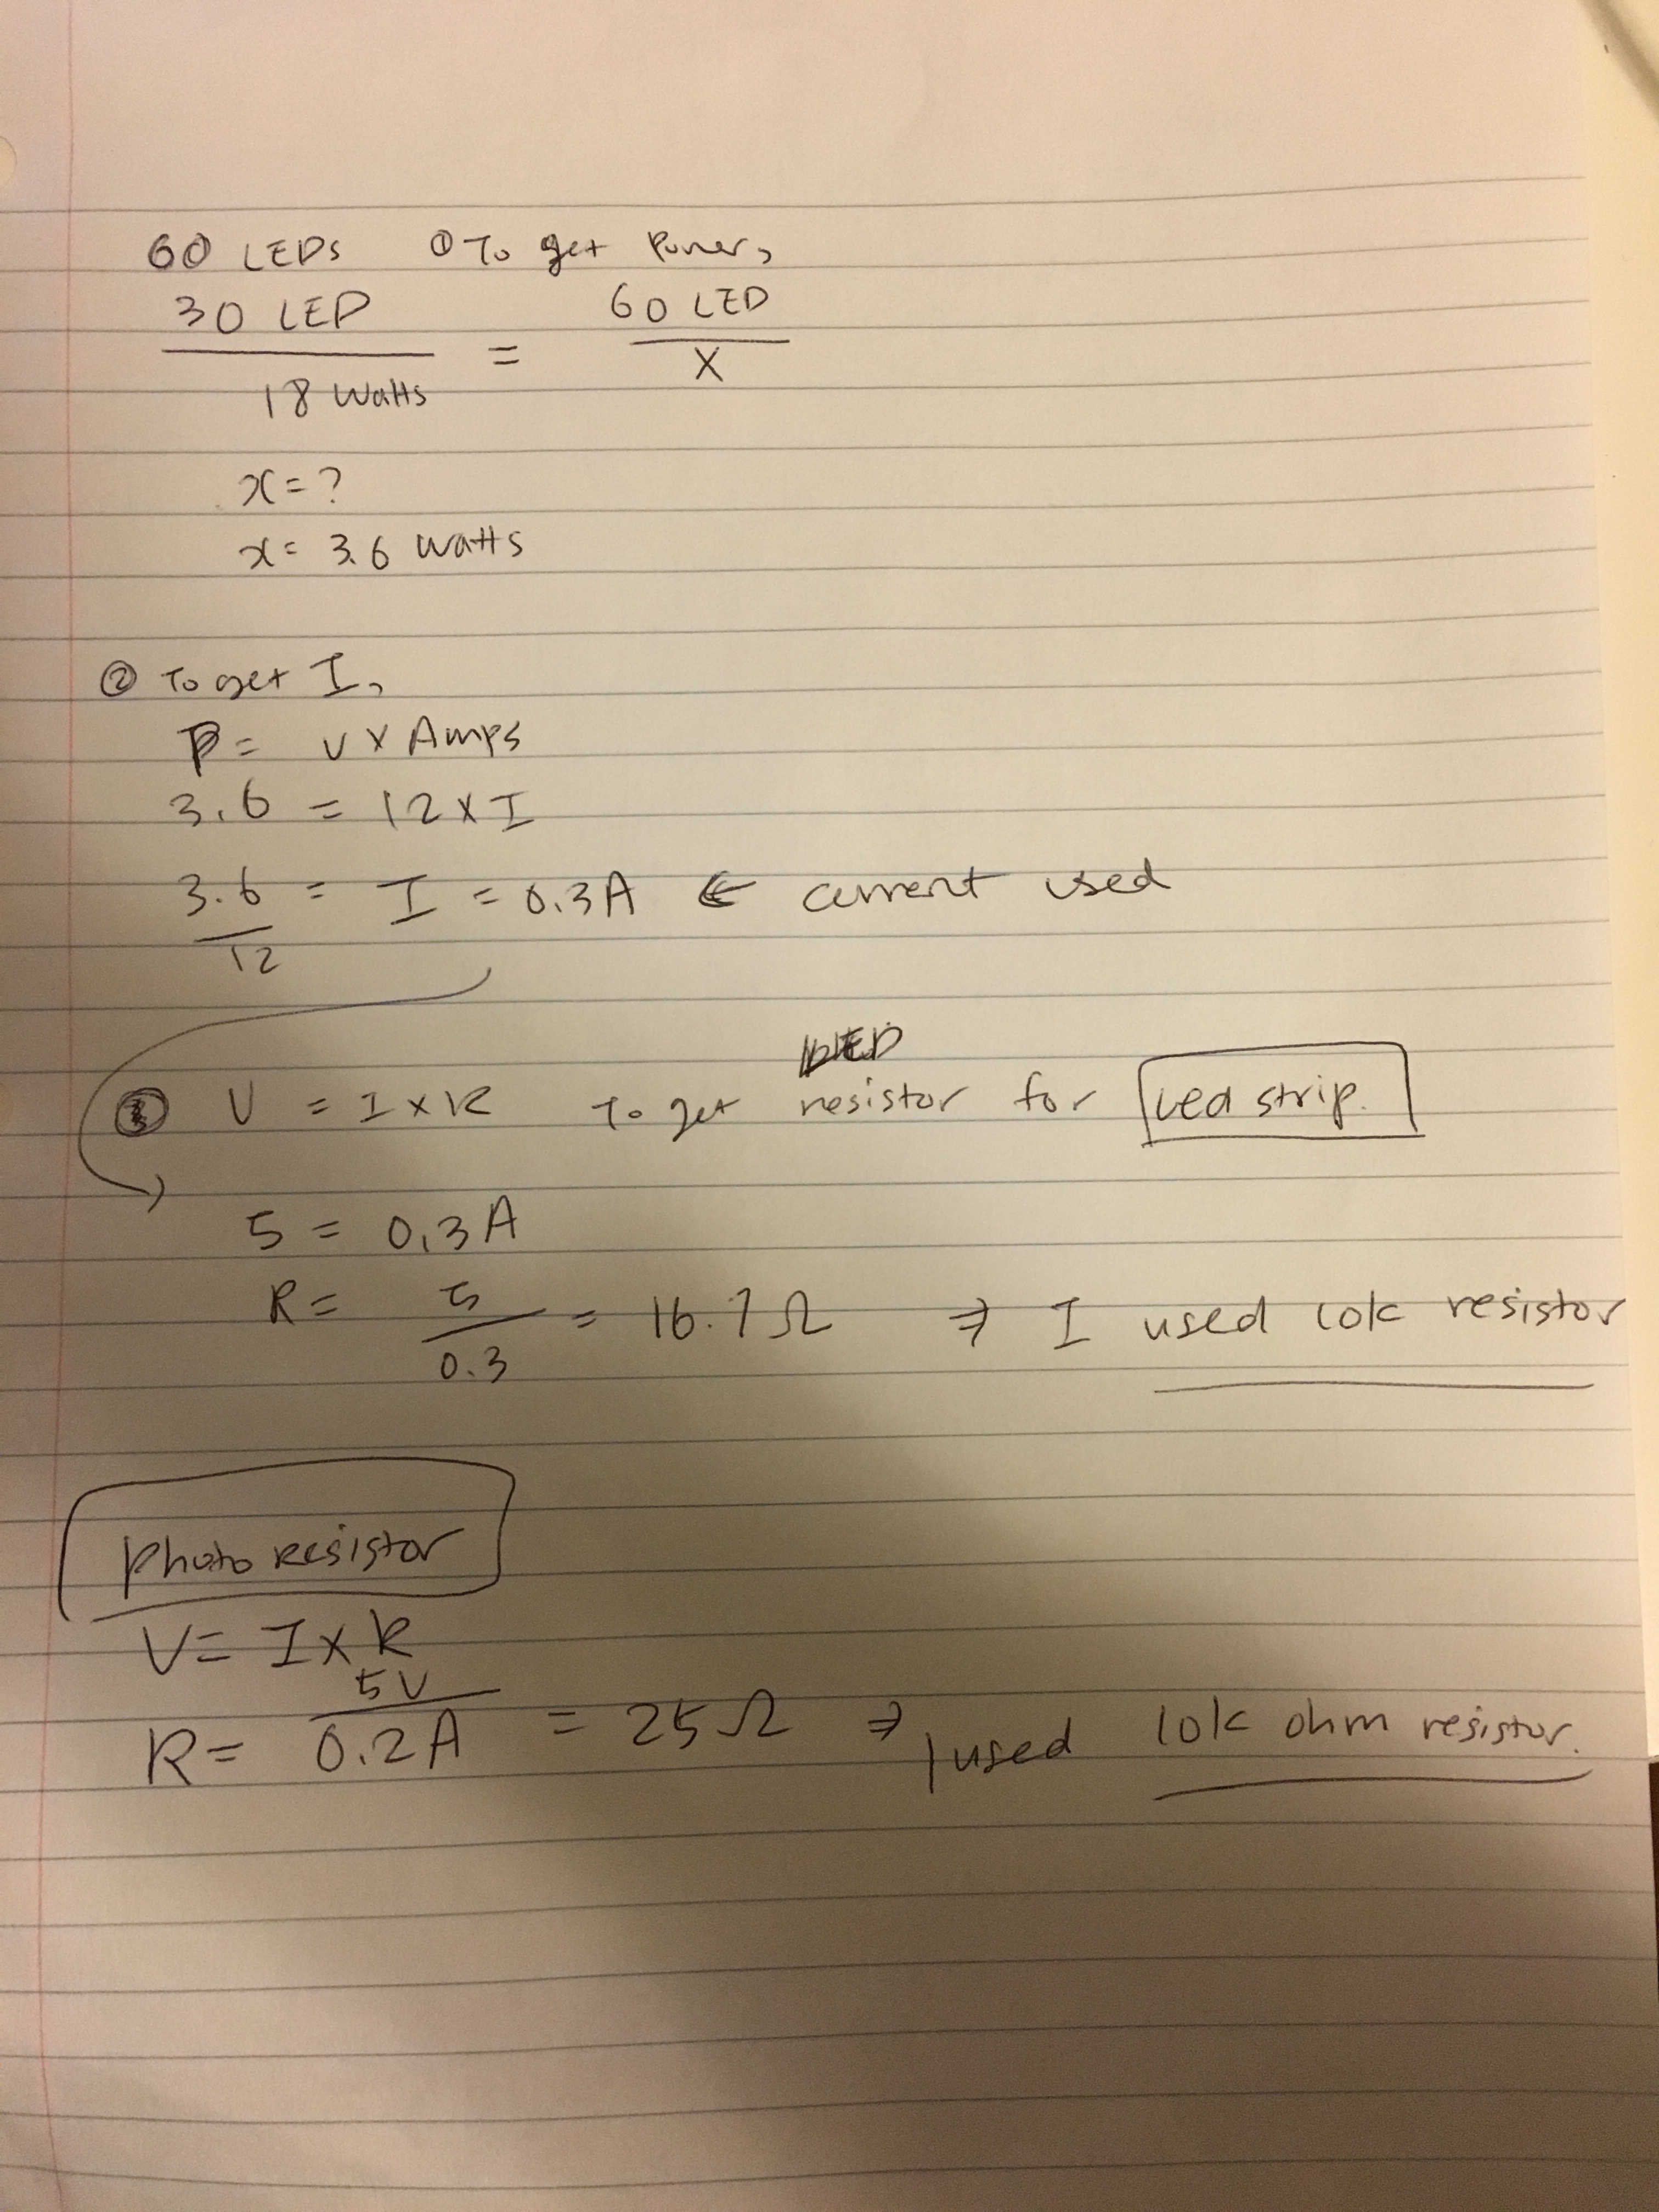 60 LEDs ① To get Power,
30 LED / 18 Watts = 60 LED / X
x = ?
x = 3.6 watts
② To get I,
P = V x Amps
3.6 = 12 x I
3.6 / 12 = I = 0.3A ← current used
LED
③ V = I x R To get resistor for Led strip.
5 = 0.3A
R = 5 / 0.3 = 16.7 Ω ⇒ I used 10k resistor
Photo Resistor
V = I x R
R = 5V / 0.2A = 25 Ω ⇒ I used 10k ohm resistor.